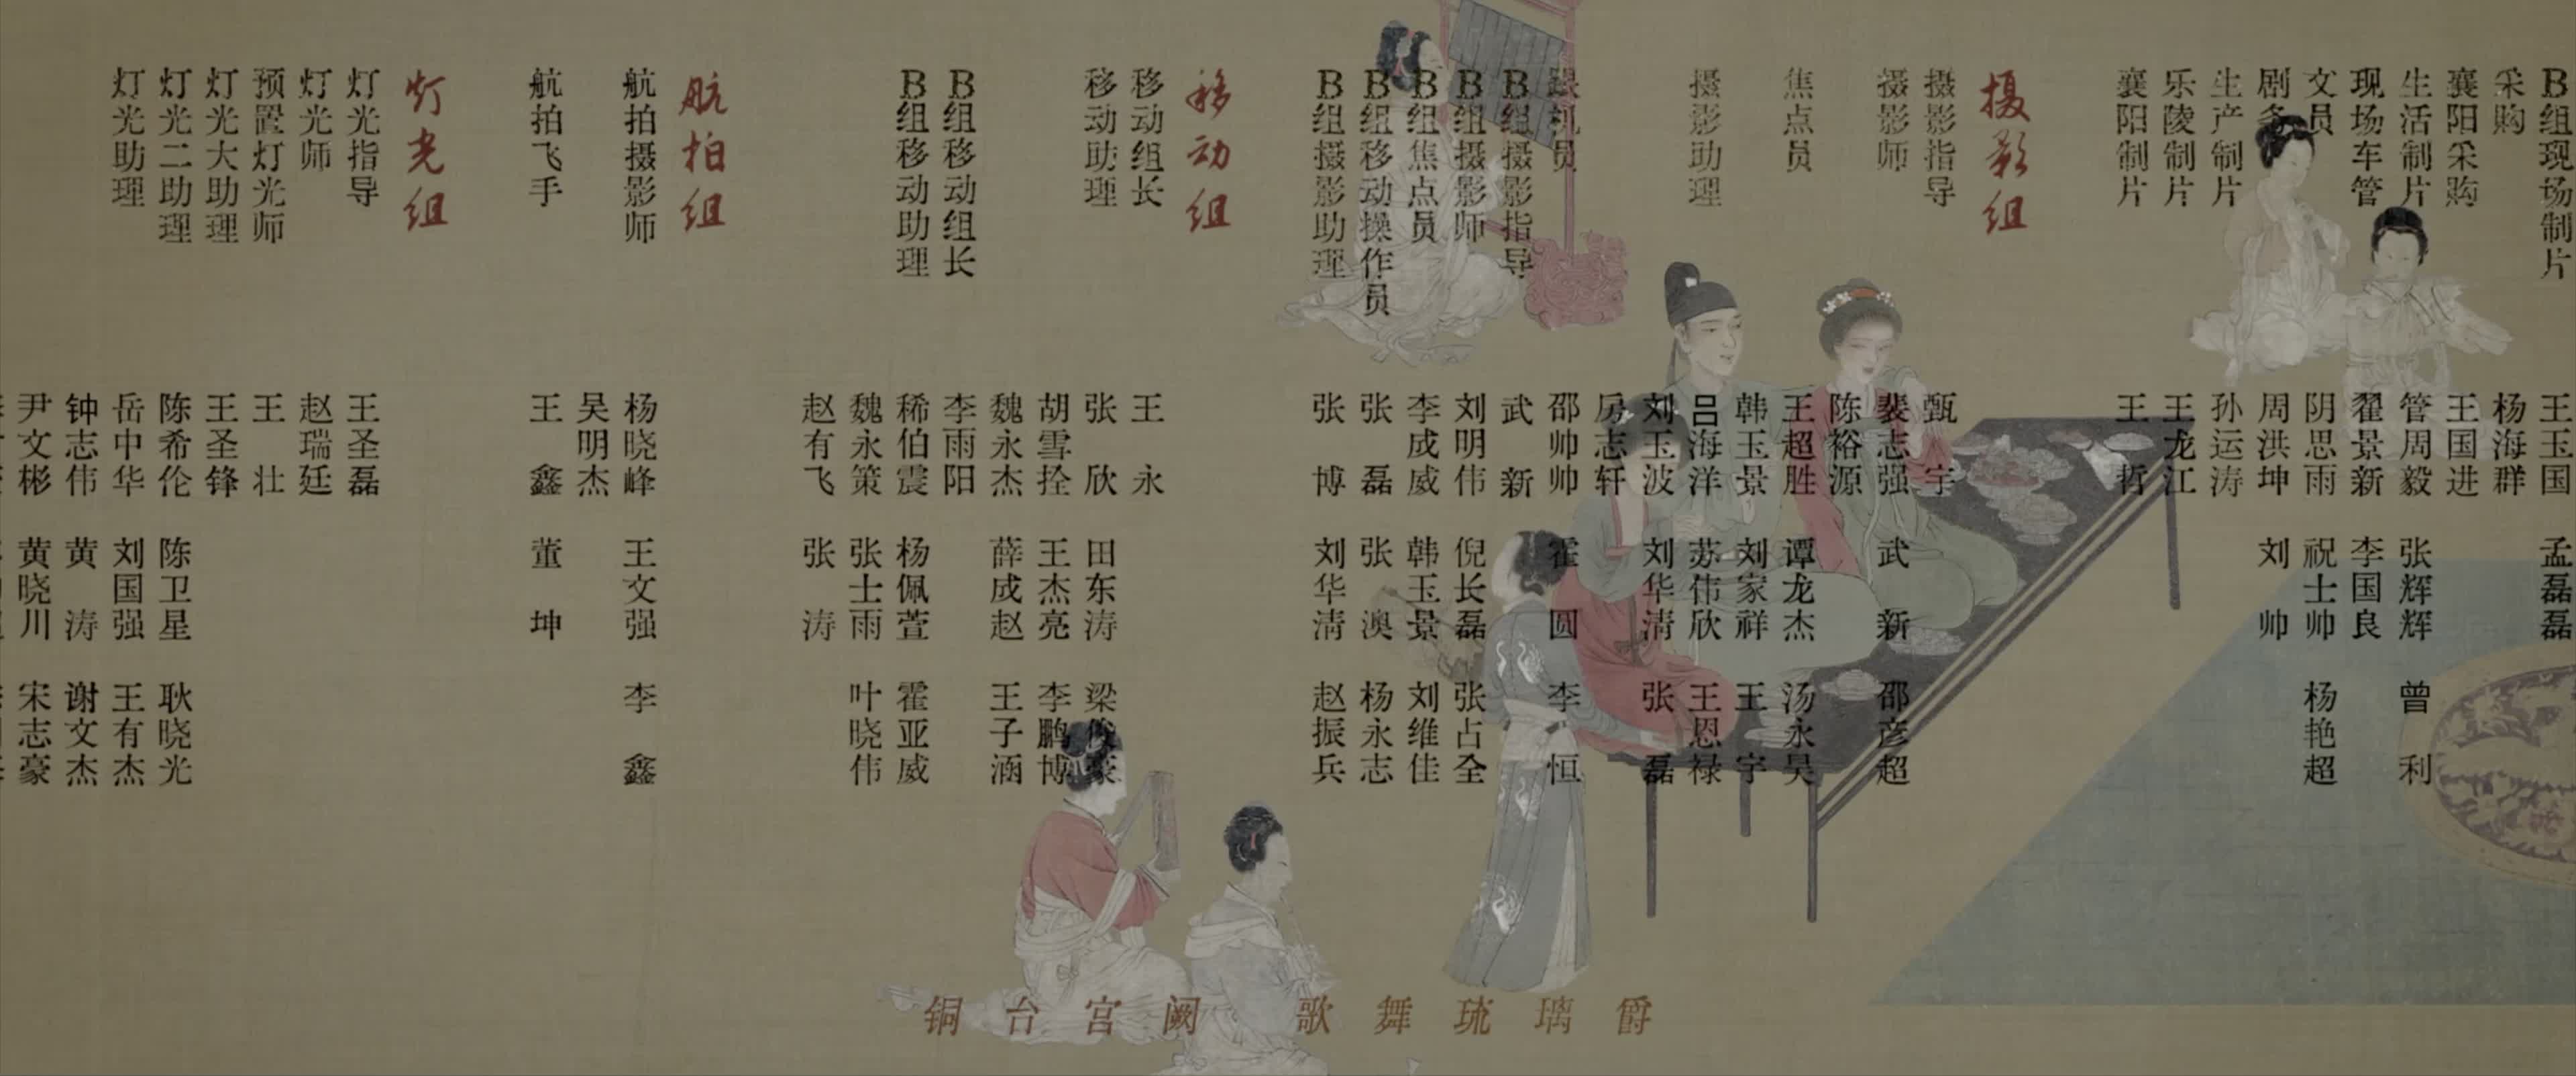 B组现场制片 王玉国 孟磊磊
采购 杨海群
襄阳采购 王国进
生活制片 管周毅 张辉辉 曾利
现场车管 翟景新 李国良
文员 阴思雨 祝士帅 杨艳超
剧务 周洪坤 刘帅
生产制片 孙运涛
乐陵制片 王龙江
襄阳制片 王哲
摄影组
摄影指导 甄宇
摄影师 裴志强 武新 邵彦超
陈裕源
焦点员 王超胜 谭龙杰 汤永昊
韩玉景 刘家祥 王宇
摄影助理 吕海洋 苏伟欣 王恩禄
刘玉波 刘华清 张磊
房志轩
跟机员 邵帅帅 霍圆 李恒
B组摄影指导 武新
B组摄影师 刘明伟 倪长磊 张占全
B组焦点员 李成威 韩玉景 刘维佳
B组移动操作员 张磊 张澳 杨永志
B组摄影助理 张博 刘华清 赵振兵
移动组
移动组长 王永
移动助理 张欣 田东涛 梁俊豪
胡雪拴 王杰亮 李鹏博
魏永杰 薛成赵 王子涵
B组移动组长 李雨阳
B组移动助理 稀伯震 杨佩萱 霍亚威
魏永策 张士雨 叶晓伟
赵有飞 张涛
航拍组
航拍摄影师 杨晓峰 王文强 李鑫
吴明杰
航拍飞手 王鑫 董坤
灯光组
灯光指导 王圣磊
灯光师 赵瑞廷
预置灯光师 王壮
灯光大助理 王圣锋
灯光二助理 陈希伦 陈卫星 耿晓光
灯光助理 岳中华 刘国强 王有杰
钟志伟 黄涛 谢文杰
尹文彬 黄晓川 宋志豪
铜台宫阙 歌舞琉璃爵